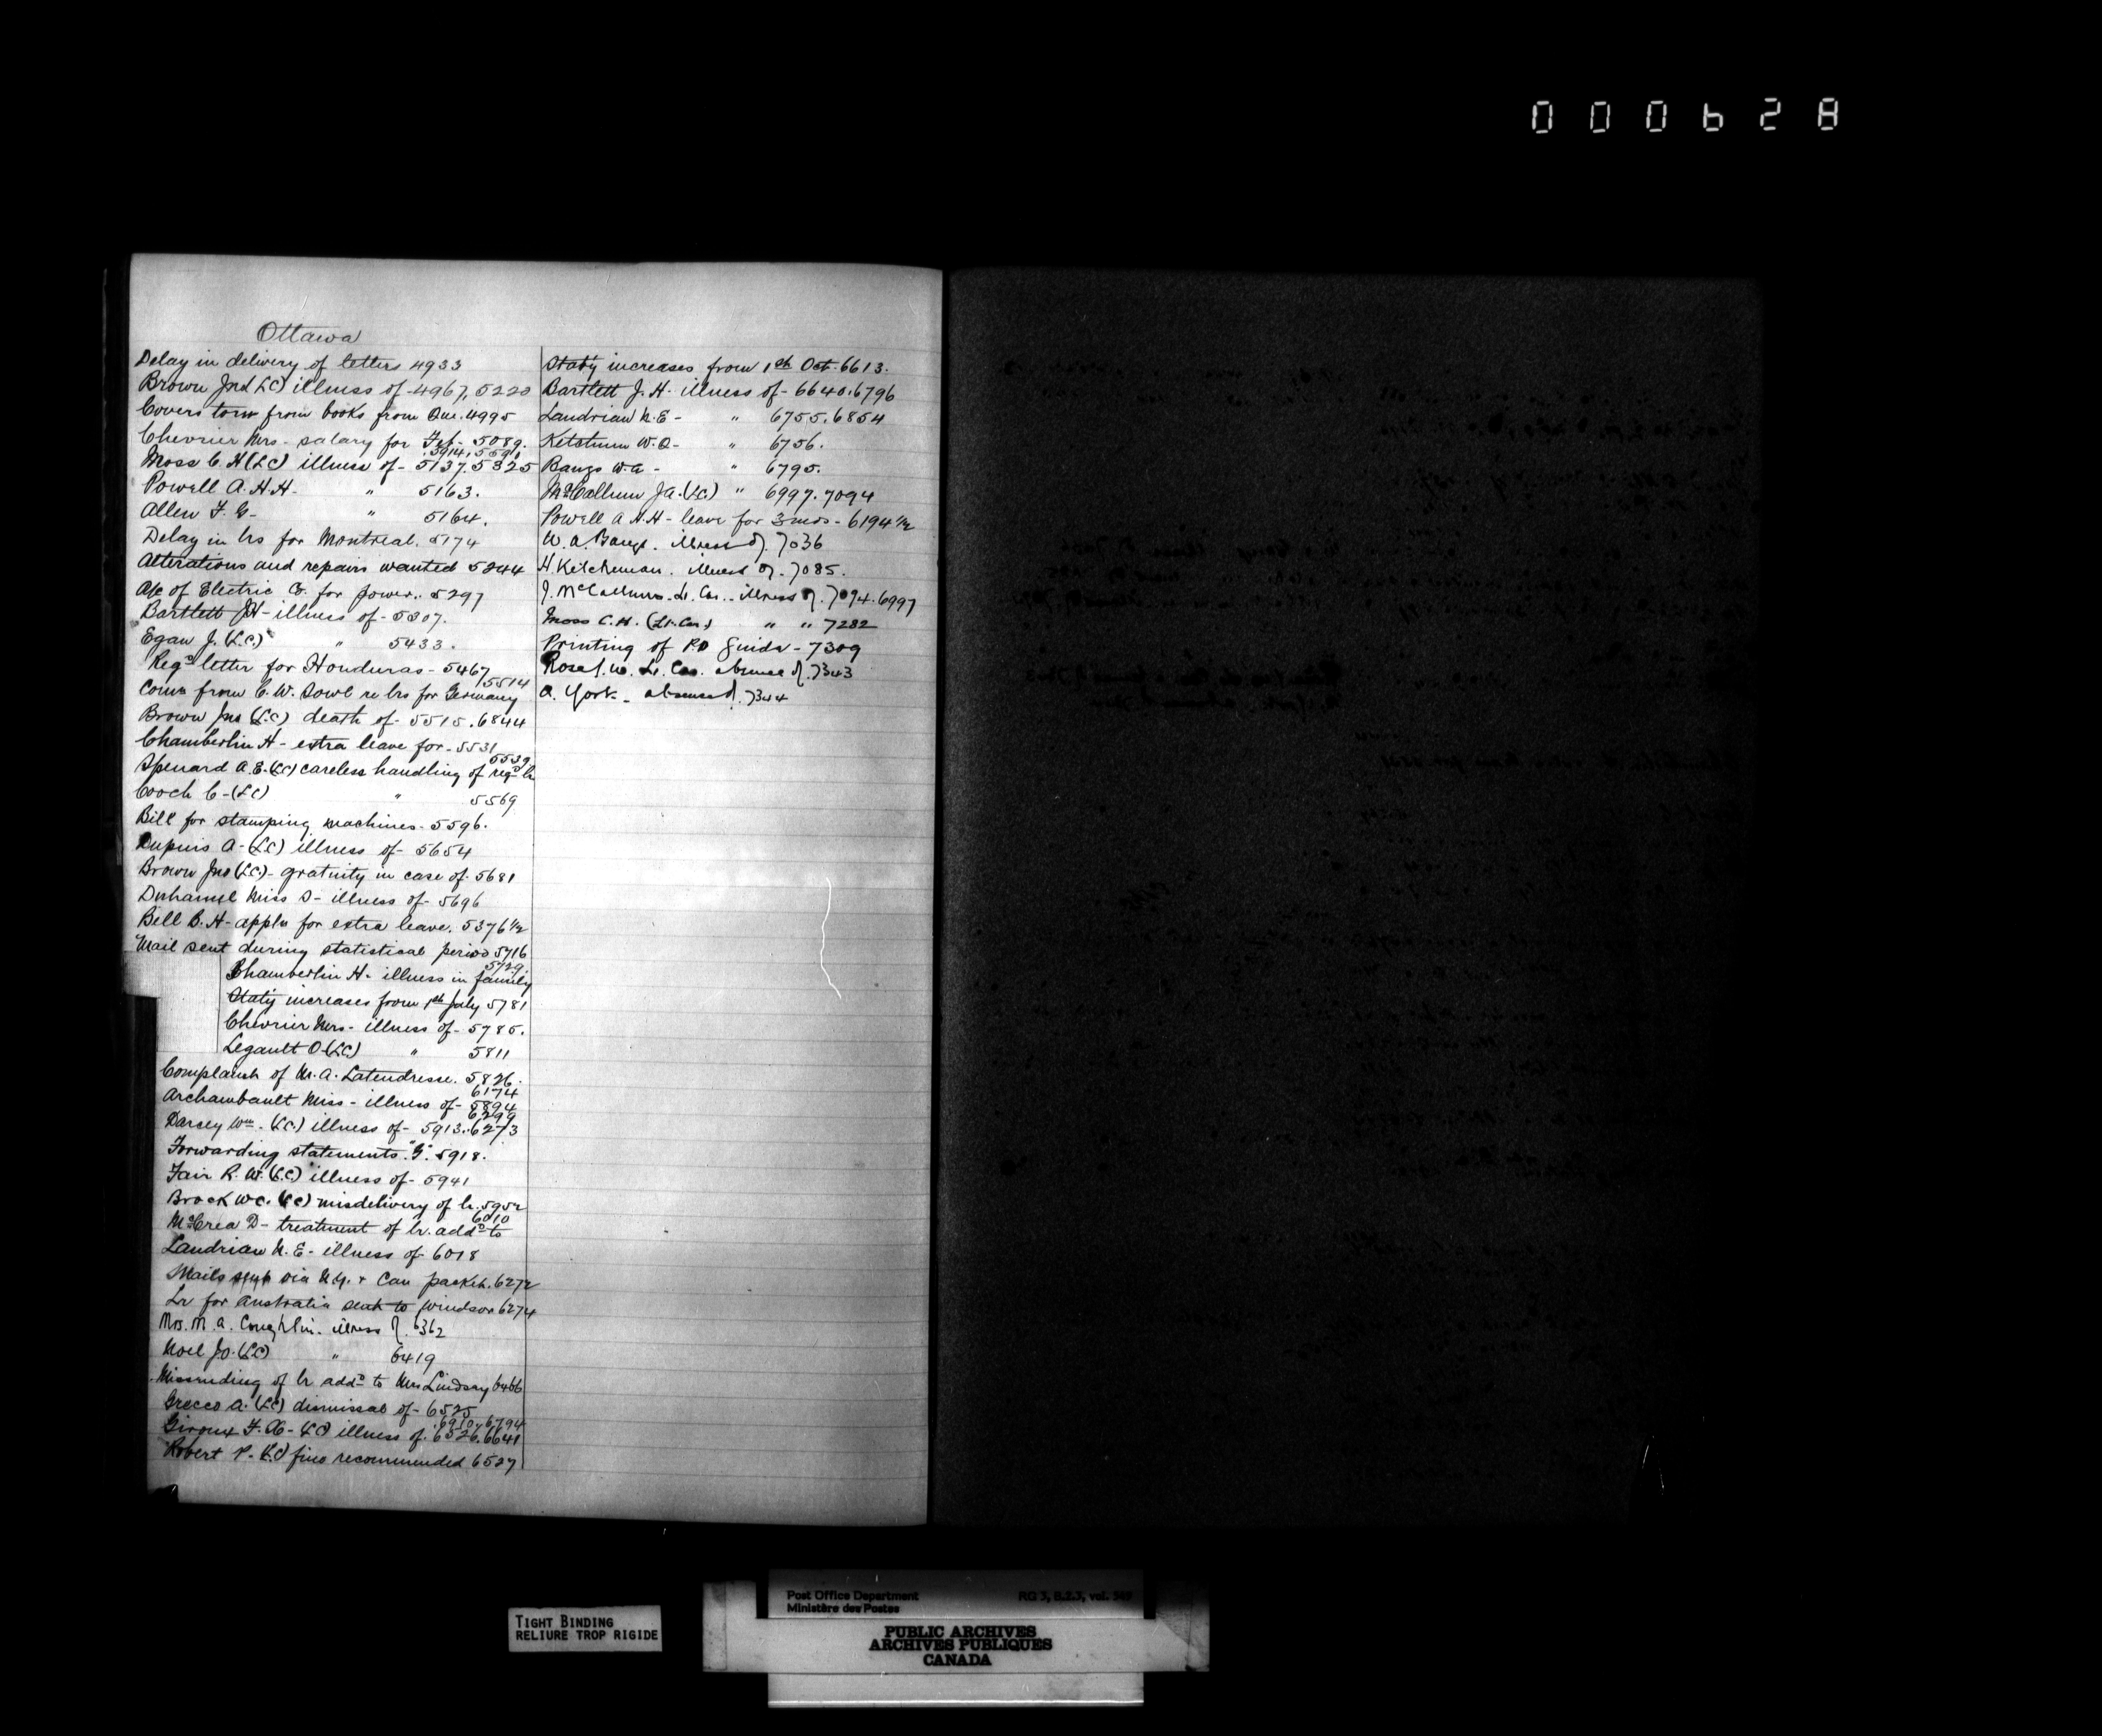 000628
Ottawa
Delay in delivery of letters 4933
Brown Jno (LC) illness of - 4967, 5220
Covers torn from books from Que. 4995
Chevrier Mrs - salary for Feb - 5089.
5914, 5591
Moss C. H (LC) illness of - 5137. 5325
Powell A. H. H. " 5163.
Allen F. G - " 5164.
Delay in lrs for Montreal. 5174
Alterations and repairs wanted 5244
A/c of Electric Co. for power. 5297
Bartlett JH - illness of - 5307.
Egan J. (LC) " 5433.
Regd letter for Honduras - 5467
5514
Comn from C. W. Sowl re lrs for Germany
Brown Jno (LC) death of - 5515. 6844
Chamberlin H - extra leave for - 5531
5539
Spenard A. E. (LC) careless handling of regd lr
Gooch C - (LC) " 5569
Bill for stamping machines - 5596.
Dupuis A - (LC) illness of - 5654
Brown Jno (LC) - gratuity in case of. 5681
Duhamel Miss D - illness of - 5696
Bell B. H - appln for extra leave. 5376 1/2
Mail sent during statistical period 5716
5729.
Chamberlin H - illness in family
Staty increases from 1st July 5781
Chevrier Mrs - illness of - 5785.
Legault O (LC) " 5811
Complaint of M. A. Latendresse. 5826.
6174
Archambault Miss - illness of - 5894
6299
Darsey Wm - (LC) illness of - 5913. 6273
Forwarding statements "G". 5918.
Fair R. W. (LC) illness of - 5941
Brock WC. (LC) misdelivery of lr. 5952
6010
McCrea D - treatment of lr. addd to
Landriau N. E - illness of - 6018
Mails sent via N.Y. + Can packet. 6272
Lr for Australia sent to Windsor 6274
Mrs. M. A. Coughlin. illness of. 6362
Noel Jo. (LC) " 6419
Missending of lr addd to Mrs Lindsay 6466
Grecco A. (LC) dismissal of - 6525
.6910. 6794
Giroux F. X - (LC) illness of. 6526. 6641
Robert P. (LC) fine recommended 6527
Staty increases from 1st Oct. 6613.
Bartlett J. H. illness of - 6640. 6796
Landriau N. E - " 6755. 6854
Ketchum W. Q - " 6756.
Bangs W. A - " 6795.
McCallum J A. (LC) " 6997. 7094
Powell A H. H - leave for 3 mos - 6194 1/2
W. A. Bangs. illness of. 7036
H. Kitchuman. illness of. 7085.
J. McCallum. Lr. Car. - illness of. 7094. 6997
Moss C. H. (Lr. Car.) " " 7282
Printing of PO Guide - 7309
Rose J. W. Lr. Car. absence of. 7343
A. York - absence of. 7344
TIGHT BINDING
RELIURE TROP RIGIDE
Post Office Department RG 3, B.2.3, vol. 569
Ministère des Postes
PUBLIC ARCHIVES
ARCHIVES PUBLIQUES
CANADA